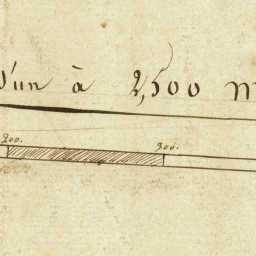 d'un à 2,500 m
200. 300.